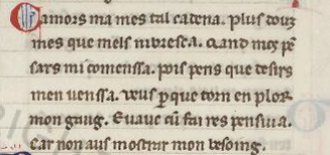 Camors ma mes tal cadena. plus douz
mes que mels ni bresca. cand mes pē
sars mi comenssa. pois pens que desirs
men venssa. veus ꝑque torn en plor
mon gaug. E vauc cū fai res pensiua.
Car non aus mostrar mon besoing.